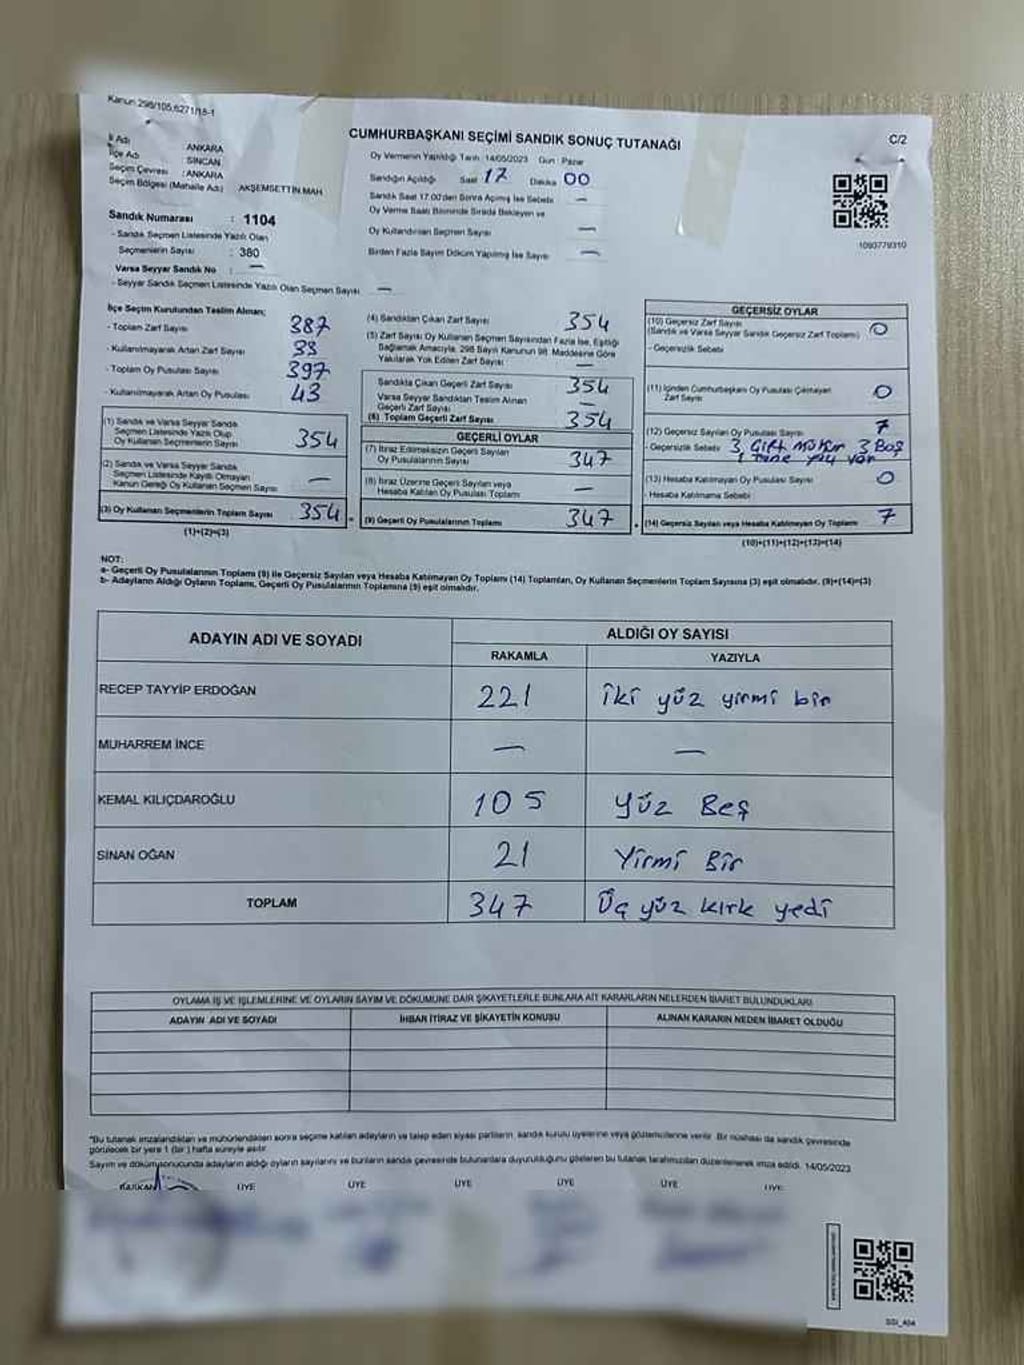 Kanun:298/105,6271/18-1
CUMHURBAŞKANI SEÇİMİ SANDIK SONUÇ TUTANAĞI
C/2
İl Adı : ANKARA
İlçe Adı : SİNCAN
Seçim Çevresi : ANKARA
Seçim Bölgesi (Mahalle Adı) AKŞEMSETTİN MAH
Oy Vermenin Yapıldığı Tarih 14/05/2023 Gün Pazar
Sandığın Açıldığı Saat 17 Dakika 00
Sandık Saat 17.00'den Sonra Açılmış İse Sebebi —
Oy Verme Saati Bitiminde Sırada Bekleyen ve
Oy Kullandırılan Seçmen Sayısı —
Birden Fazla Sayım Döküm Yapılmış İse Sayısı —
1090779310
Sandık Numarası : 1104
- Sandık Seçmen Listesinde Yazılı Olan
Seçmenlerin Sayısı : 380
Varsa Seyyar Sandık No : —
- Seyyar Sandık Seçmen Listesinde Yazılı Olan Seçmen Sayısı —
İlçe Seçim Kurulundan Teslim Alınan;
- Toplam Zarf Sayısı 387
- Kullanılmayarak Artan Zarf Sayısı 33
- Toplam Oy Pusulası Sayısı 397
- Kullanılmayarak Artan Oy Pusulası 43
(1) Sandık ve Varsa Seyyar Sandık
Seçmen Listesinde Yazılı Olup
Oy Kullanan Seçmenlerin Sayısı 354
(2) Sandık ve Varsa Seyyar Sandık
Seçmen Listesinde Kayıtlı Olmayan
Kanun Gereği Oy Kullanan Seçmen Sayısı —
(3) Oy Kullanan Seçmenlerin Toplam Sayısı 354
(1)+(2)=(3)
(4) Sandıktan Çıkan Zarf Sayısı 354
(5) Zarf Sayısı Oy Kullanan Seçmen Sayısından Fazla İse, Eşitliği
Sağlamak Amacıyla, 298 Sayılı Kanunun 98. Maddesine Göre
Yakılarak Yok Edilen Zarf Sayısı —
Sandıkta Çıkan Geçerli Zarf Sayısı 354
Varsa Seyyar Sandıktan Teslim Alınan
Geçerli Zarf Sayısı —
(6) Toplam Geçerli Zarf Sayısı 354
GEÇERLİ OYLAR
(7) İtiraz Edilmeksizin Geçerli Sayılan
Oy Pusulalarının Sayısı 347
(8) İtiraz Üzerine Geçerli Sayılan veya
Hesaba Katılan Oy Pusulası Toplamı —
(9) Geçerli Oy Pusulalarının Toplamı 347
GEÇERSİZ OYLAR
(10) Geçersiz Zarf Sayısı 0
(Sandık ve Varsa Seyyar Sandık Geçersiz Zarf Toplamı)
- Geçersizlik Sebebi
(11) İçinden Cumhurbaşkanı Oy Pusulası Çıkmayan
Zarf Sayısı 0
(12) Geçersiz Sayılan Oy Pusulası Sayısı 7
- Geçersizlik Sebebi 3 Çift Mühür 3 Boş
1 tane
(13) Hesaba Katılmayan Oy Pusulası Sayısı 0
- Hesaba Katılmama Sebebi
(14) Geçersiz Sayılan veya Hesaba Katılmayan Oy Toplamı 7
(10)+(11)+(12)+(13)=(14)
NOT:
a- Geçerli Oy Pusulalarının Toplamı (9) ile Geçersiz Sayılan veya Hesaba Katılmayan Oy Toplamı (14) Toplamları, Oy Kullanan Seçmenlerin Toplam Sayısına (3) eşit olmalıdır. (9)+(14)=(3)
b- Adayların Aldığı Oyların Toplamı, Geçerli Oy Pusulalarının Toplamına (9) eşit olmalıdır.
ADAYIN ADI VE SOYADI
ALDIĞI OY SAYISI
RAKAMLA YAZIYLA
RECEP TAYYİP ERDOĞAN 221 iki yüz yirmi bir
MUHARREM İNCE — —
KEMAL KILIÇDAROĞLU 105 Yüz Beş
SİNAN OĞAN 21 Yirmi Bir
TOPLAM 347 Üç yüz kırk yedi
OYLAMA İŞ VE İŞLEMLERİNE VE OYLARIN SAYIM VE DÖKÜMÜNE DAİR ŞİKAYETLERLE BUNLARA AİT KARARLARIN NELERDEN İBARET BULUNDUKLARI
ADAYIN ADI VE SOYADI İHBAR İTİRAZ VE ŞİKAYETİN KONUSU ALINAN KARARIN NEDEN İBARET OLDUĞU
*Bu tutanak imzalandıktan ve mühürlendikten sonra seçime katılan adayların ve talep eden siyasi partilerin, sandık kurulu üyelerine veya gözlemcilerine verilir. Bir nüshası da sandık çevresinde
görülecek bir yere 1 (bir) hafta süreyle asılır.
Sayım ve döküm sonucunda adayların aldığı oyların sayılarını ve bunların sandık çevresinde bulunanlara duyurulduğunu gösteren bu tutanak tarafımızdan düzenlenerek imza edildi. 14/05/2023
BAŞKAN ÜYE ÜYE ÜYE ÜYE ÜYE ÜYE